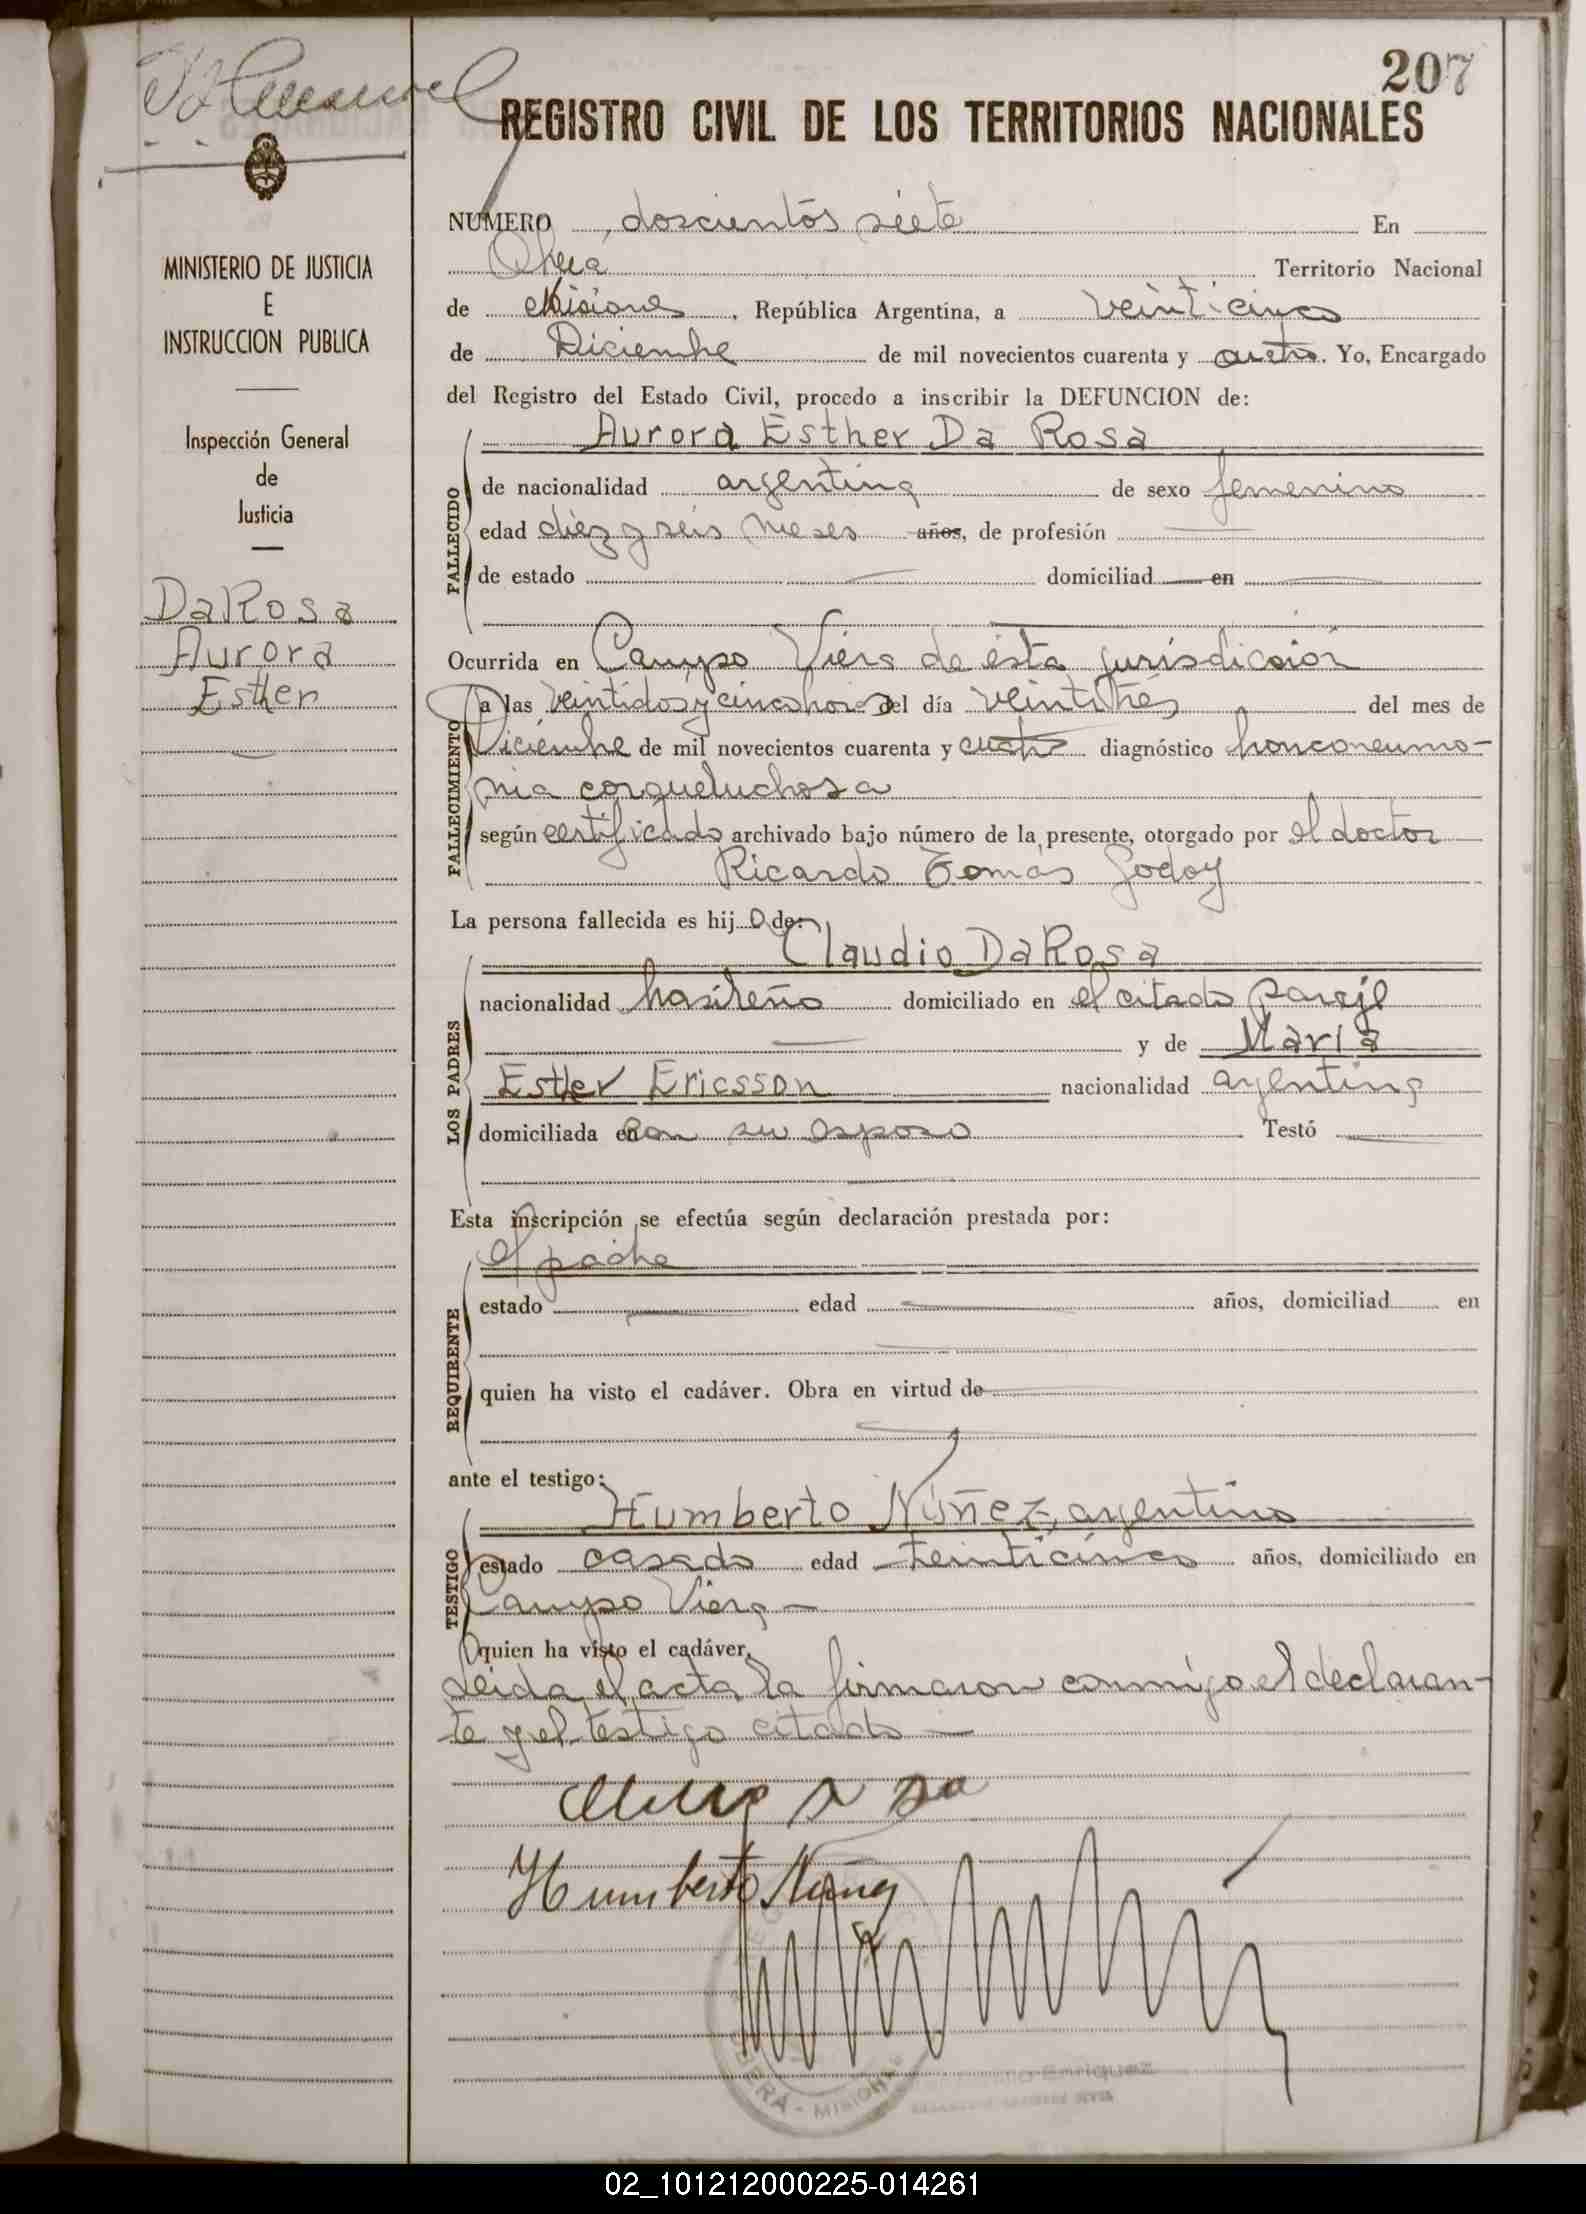 207
REGISTRO CIVIL DE LOS TERRITORIOS NACIONALES
MINISTERIO DE JUSTICIA
E
INSTRUCCION PUBLICA
Inspección General
de
Justicia
Da Rosa
Aurora
Esther
NUMERO doscientos siete En
Oberá Territorio Nacional
de Misiones, República Argentina, a veinticinco
de Diciembre de mil novecientos cuarenta y cuatro. Yo, Encargado
del Registro del Estado Civil, procedo a inscribir la DEFUNCION de:
Aurora Esther Da Rosa
FALLECIDO
de nacionalidad argentina de sexo femenino
edad diez y seis meses años, de profesión
de estado domiciliad en
Ocurrida en Campo Viera de esta jurisdicción
FALLECIMIENTO
a las veintidos y cinco horas del día veintitrés del mes de
Diciembre de mil novecientos cuarenta y cuatro diagnóstico bronconeumo-
nia coqueluchosa
según certificado archivado bajo número de la presente, otorgado por el doctor
Ricardo Tomás Godoy
La persona fallecida es hij a de:
Claudio Da Rosa
LOS PADRES
nacionalidad brasileño domiciliado en el citado paraje
y de María
Esther Ericsson nacionalidad argentina
domiciliada en con su esposo Testó
Esta inscripción se efectúa según declaración prestada por:
el padre
REQUIRENTE
estado edad años, domiciliad en
quien ha visto el cadáver. Obra en virtud de
ante el testigo:
Humberto Núñez, argentino
TESTIGO
estado casado edad veinticinco años, domiciliado en
Campo Viera
quien ha visto el cadáver.
Leida el acta la firmaron conmigo el declaran-
te y el testigo citado
Humberto Núñez
OBERÁ - MISIONES
02_101212000225-014261